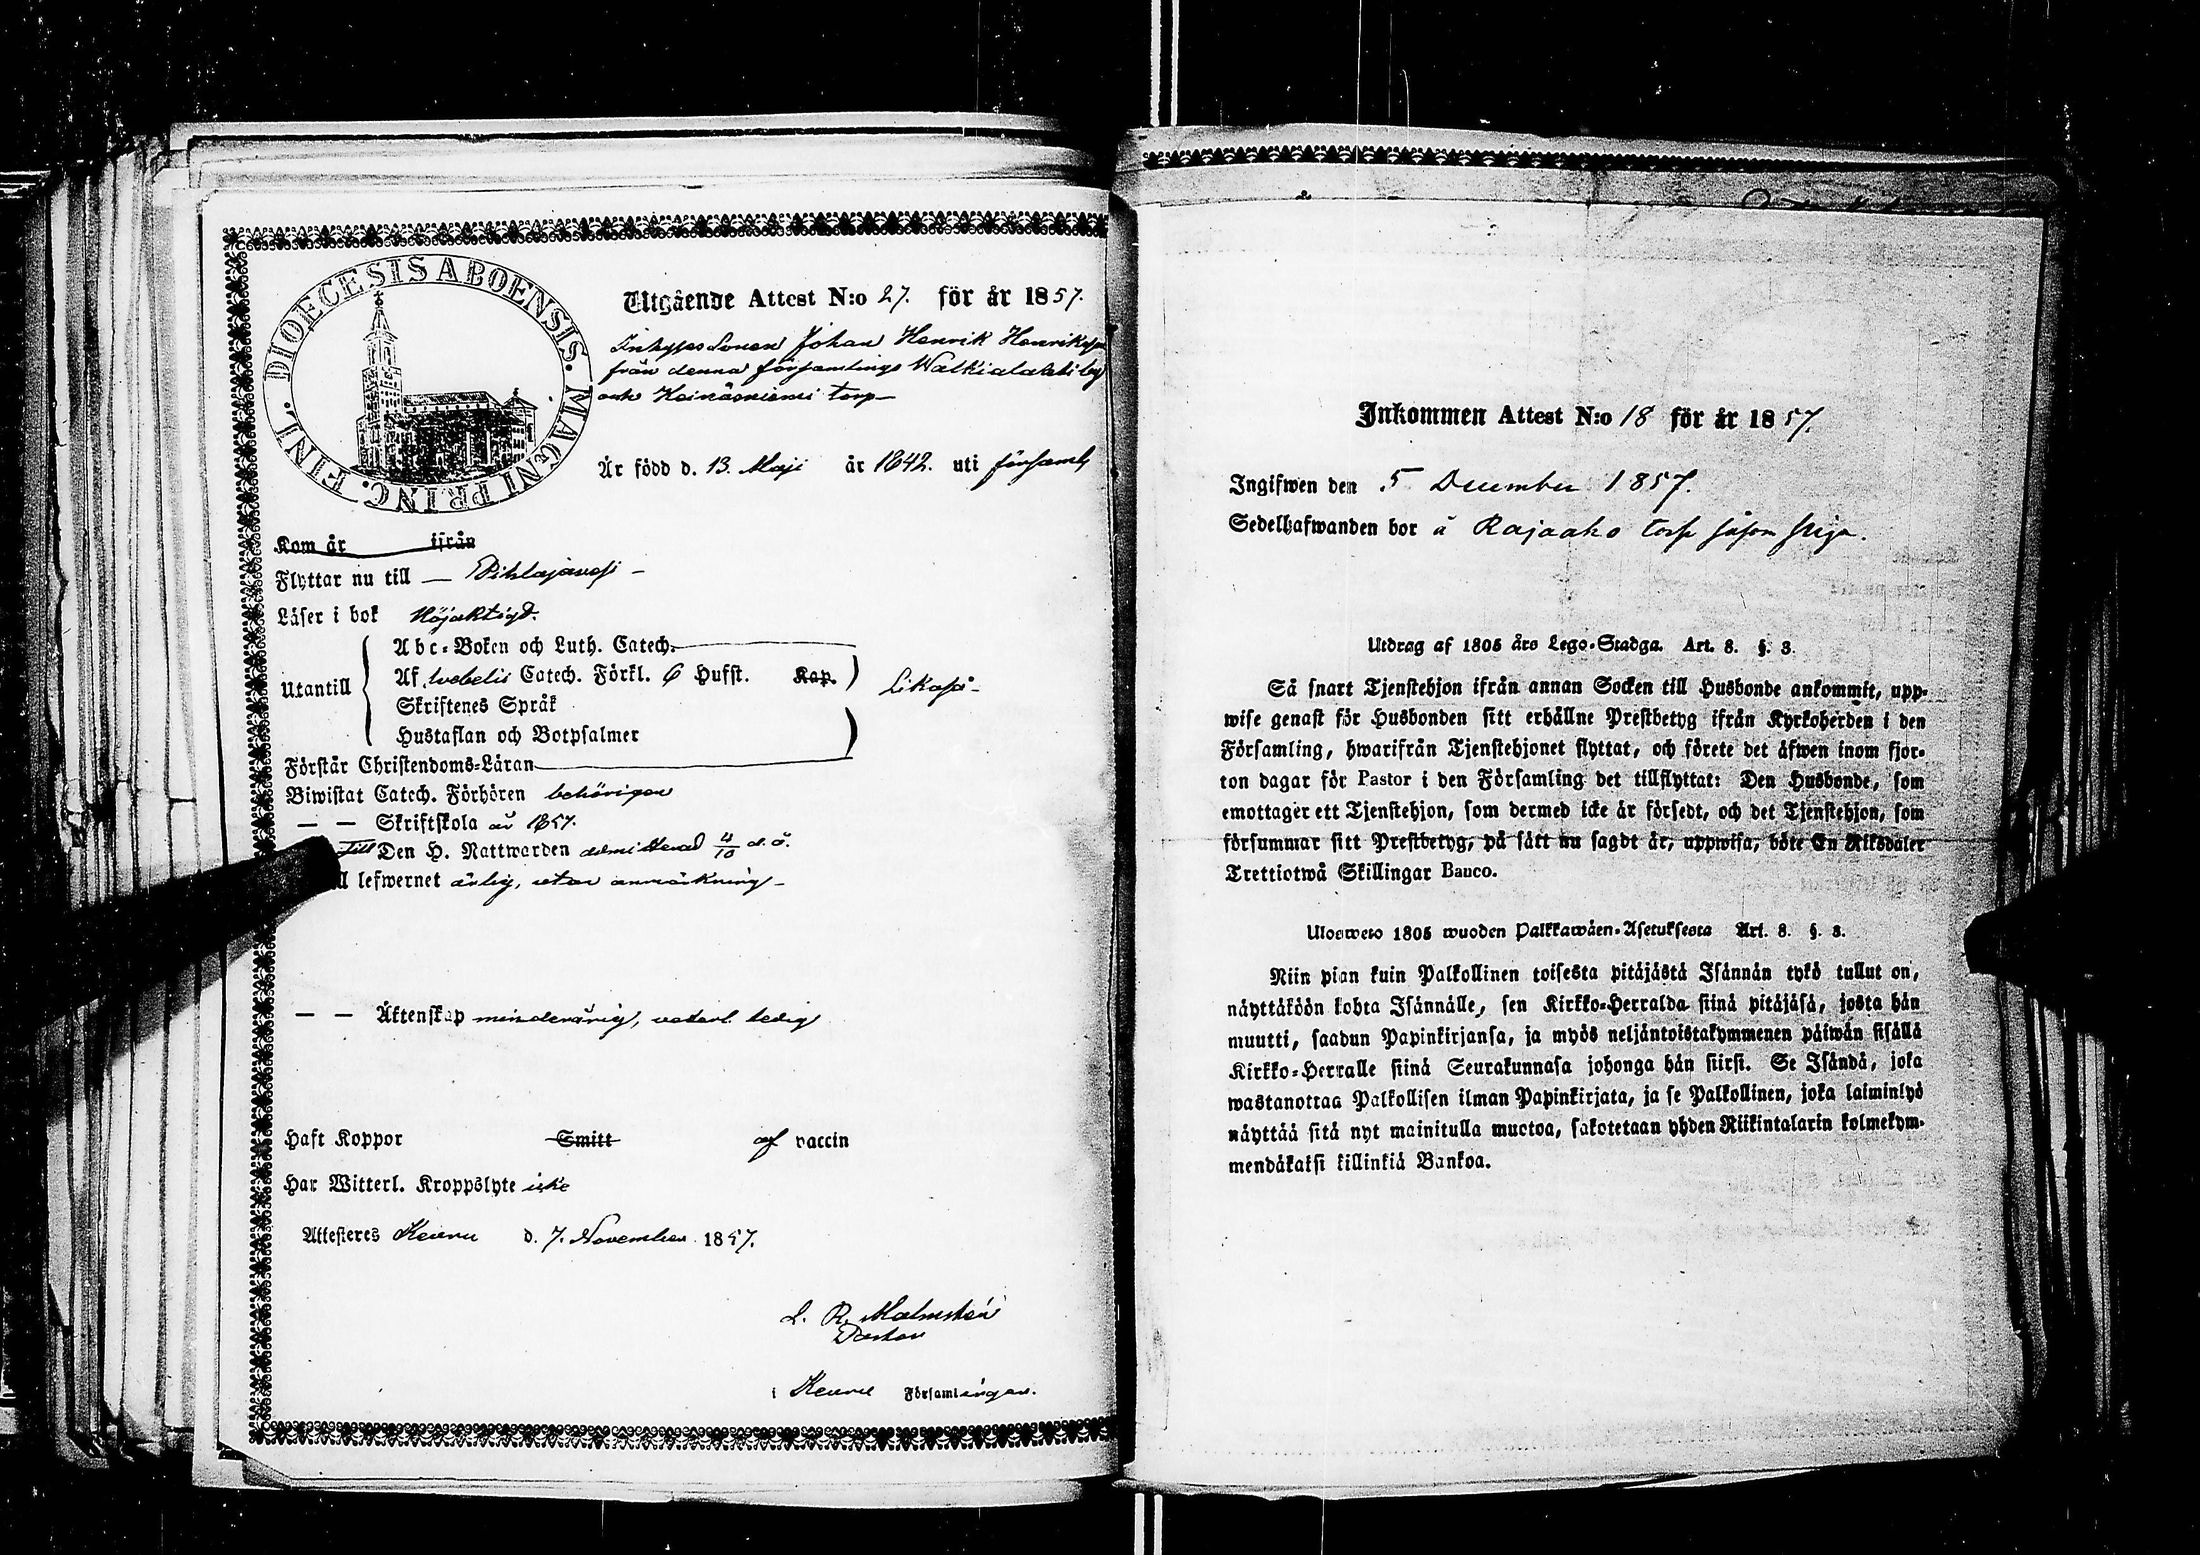 DIOECESIS ABOENSIS. MAGNI PRINC. FINL.
Utgående Attest N:o 27. för år 1857.
Inhyses Sonen Johan Henrik Henriksson
från denna församlings Walkialaksi by
och Koinäsniemi torp
Är född d. 13. Maji år 1842. uti församl
Kom år ifrån
Flyttar nu till — Pihlajavesi —
Läser i bok Nöjaktigt.
Abc-Boken och Luth. Catech.
Utantill Af Webelii Catech. Förkl. 6 Hufst. Kap. Likaså —
Skriftenes Språk
Hustaflan och Botpsalmer
Förstår Christendoms-Läran
Biwistat Catech. Förhören behörigen
— — Skriftskola år 1857.
Till Den H. Nattwarden admitterad 4/10 d. å.
lefwernet ärlig, utan anmärkning —
— — Äktenskap minderårig, veterl. ledig
Haft Koppor Smitt af vaccin
Har Witterl. Kroppslyte icke
Attesteres Keuru d. 7. November 1857.
L. R. Malmstén
Pastor
i Keuru Församlingen.
Inkommen Attest N:o 18 för år 1857.
Ingifwen den 5 December 1857.
Sedelhafwanden bor å Rajaaho torp såsom
Utdrag af 1805 års Lego-Stadga. Art. 8. §. 3.
Så snart Tjenstehjon ifrån annan Socken till Husbonde ankommit, upp-
wise genast för Husbonden sitt erhållne Prestbetyg ifrån Kyrkoherden i den
Församling, hwarifrån Tjenstehjonet flyttat, och förete det äfwen inom fjor-
ton dagar för Pastor i den Församling det tillflyttat: Den Husbonde, som
emottager ett Tjenstehjon, som dermed icke är försedt, och det Tjenstehjon, som
försummar sitt Prestbetyg, på sätt nu sagdt är, uppwisa, böte En Riksdaler
Trettiotwå Skillingar Banco.
Ulosweto 1805 wuoden Palkkawäen-Asetuksesta Art. 8. §. 3.
Niin pian kuin Palkollinen toisesta pitäjästä Isännän tykö tullut on,
näyttäköön kohta Isännälle, sen Kirkko-Herralda siinä pitäjäsä, josta hän
muutti, saadun Papinkirjansa, ja myös neljäntoistakymmenen päiwän sisällä
Kirkko-Herralle siinä Seurakunnasa johonga hän siirsi. Se Isändä, joka
wastanottaa Palkollisen ilman Papinkirjata, ja se Palkollinen, joka laiminlyö
näyttää sitä nyt mainitulla muotoa, sakotetaan yhden Riikintalarin kolmekym-
mendäkaksi killinkiä Bankoa.